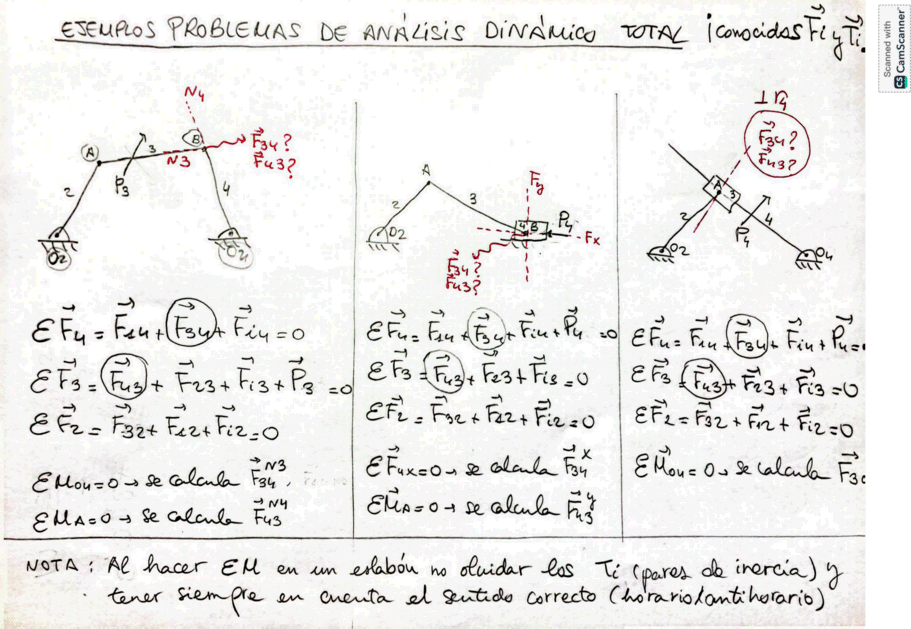 EJEMPLOS PROBLEMAS DE ANÁLISIS DINÁMICO TOTAL ¡conocidas F⃗i y T⃗i
Scanned with
CS CamScanner
N4
A
B
3
N3
F⃗34?
F⃗43?
P3
2
4
O2
O4
ƐF⃗4 = F⃗14 + F⃗34 + F⃗i4 = 0
ƐF⃗3 = F⃗43 + F⃗23 + F⃗i3 + P⃗3 = 0
ƐF⃗2 = F⃗32 + F⃗12 + F⃗i2 = 0
ƐMO4 = 0 → se calcula F⃗34 N3
ƐMA = 0 → se calcula F⃗43 N4
A
Fy
2
3
4
B
P4
Fx
O2
F34?
F43?
ƐF⃗4 = F⃗14 + F⃗34 + F⃗i4 + P⃗4 = 0
ƐF⃗3 = F⃗43 + F⃗23 + F⃗i3 = 0
ƐF⃗2 = F⃗32 + F⃗12 + F⃗i2 = 0
ƐF⃗4x = 0 → se calcula F⃗34 x
ƐM⃗A = 0 → se calcula F⃗43 y
F⃗34?
F⃗43?
A
3
2
4
P4
O2
O4
ƐF⃗4 = F⃗14 + F⃗34 + F⃗i4 + P⃗4 =
ƐF⃗3 = F⃗43 + F⃗23 + F⃗i3 = 0
ƐF⃗2 = F⃗32 + F⃗12 + F⃗i2 = 0
ƐM⃗O4 = 0 → se calcula F⃗3
NOTA : Al hacer ƐM en un eslabón no olvidar los Ti (pares de inercia) y
tener siempre en cuenta el sentido correcto (horario/antihorario)